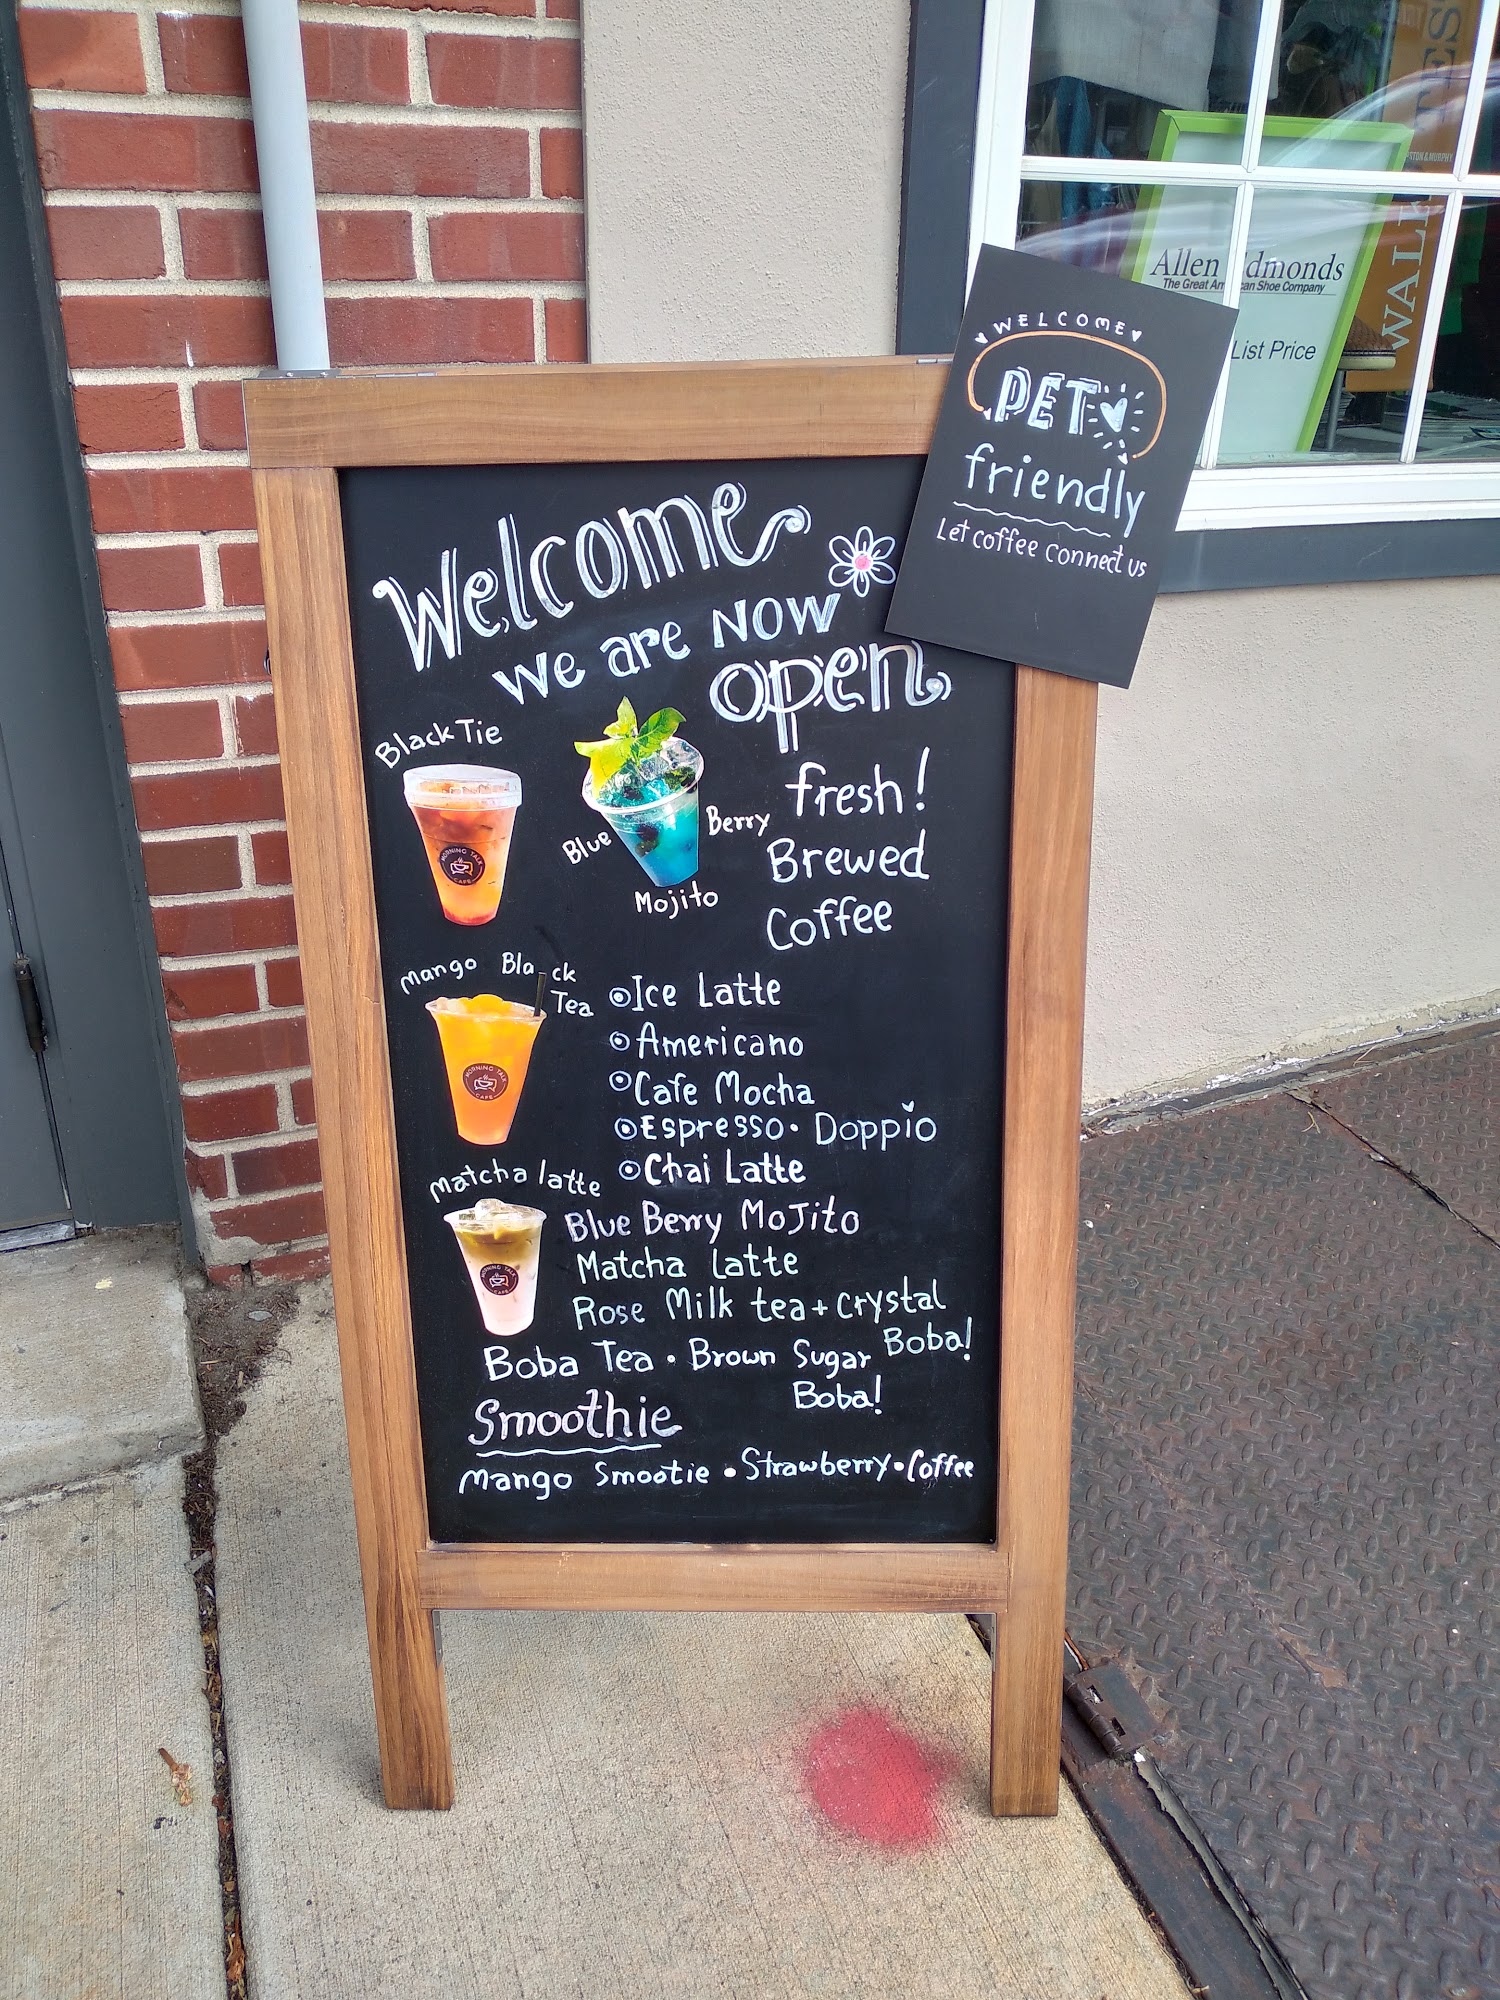 WELCOME
PET
friendly
Let coffee connect us
Welcome
we are NOW
open
Black Tie
Blue Berry
Mojito
fresh!
Brewed
Coffee
MORNING TALK
CAFE
Mango Black
Tea
MORNING TALK
CAFE
Matcha latte
MORNING TALK
CAFE
Ice Latte
Americano
Cafe Mocha
Espresso • Doppio
Chai Latte
Blue Berry Mojito
Matcha Latte
Rose Milk tea + Crystal
Boba!
Boba Tea • Brown Sugar
Boba!
Smoothie
Mango Smootie • Strawberry • Coffee
Allen Edmonds
The Great American Shoe Company
List Price